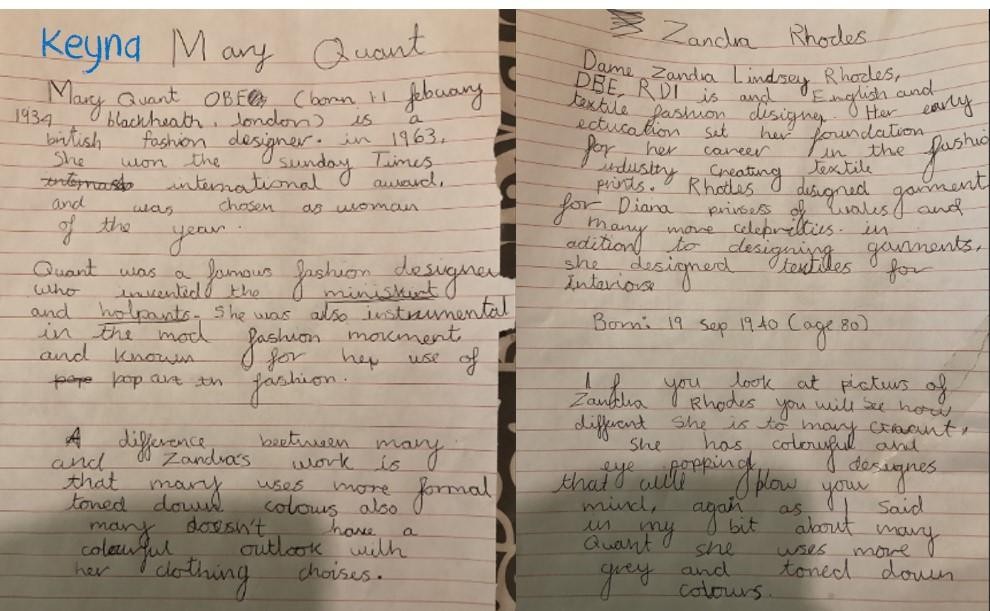 Keyna Mary Quant
Mary Quant OBE (born 11 february
1934, blackheath, london) is a
british fashion designer. in 1963,
She won the sunday Times
international award,
and was chosen as woman
of the year.
Quant was a famous fashion designer
who invented the miniskirt
and hotpants. She was also instrumental
in the mod fashion movment,
and known for her use of
pop art in fashion.
A difference beetween mary
and Zandra's work is
that mary uses more formal
toned down colours also
mary doesn't have a
colourful outlook with
her clothing choises.
Zandra Rhodes
Dame Zandra Lindsey Rhodes,
DBE, RDI is and English and
textile fashion designer. Her early
education set her foundation
for her career in the fashio
industry creating textile
prints. Rhodes designed garment
for Diana prinsess of wales and
many more celebrities. in
adition to designing garments,
she designed textiles for
interiors
Born: 19 Sep 1940 (age 80)
If you look at picturs of
Zandra Rhodes you will see how
different she is to mary Quant,
She has colourful and
eye popping designes
that will blow your
mind, again as I said
in my bit about mary
Quant she uses more
grey and toned down
colours.